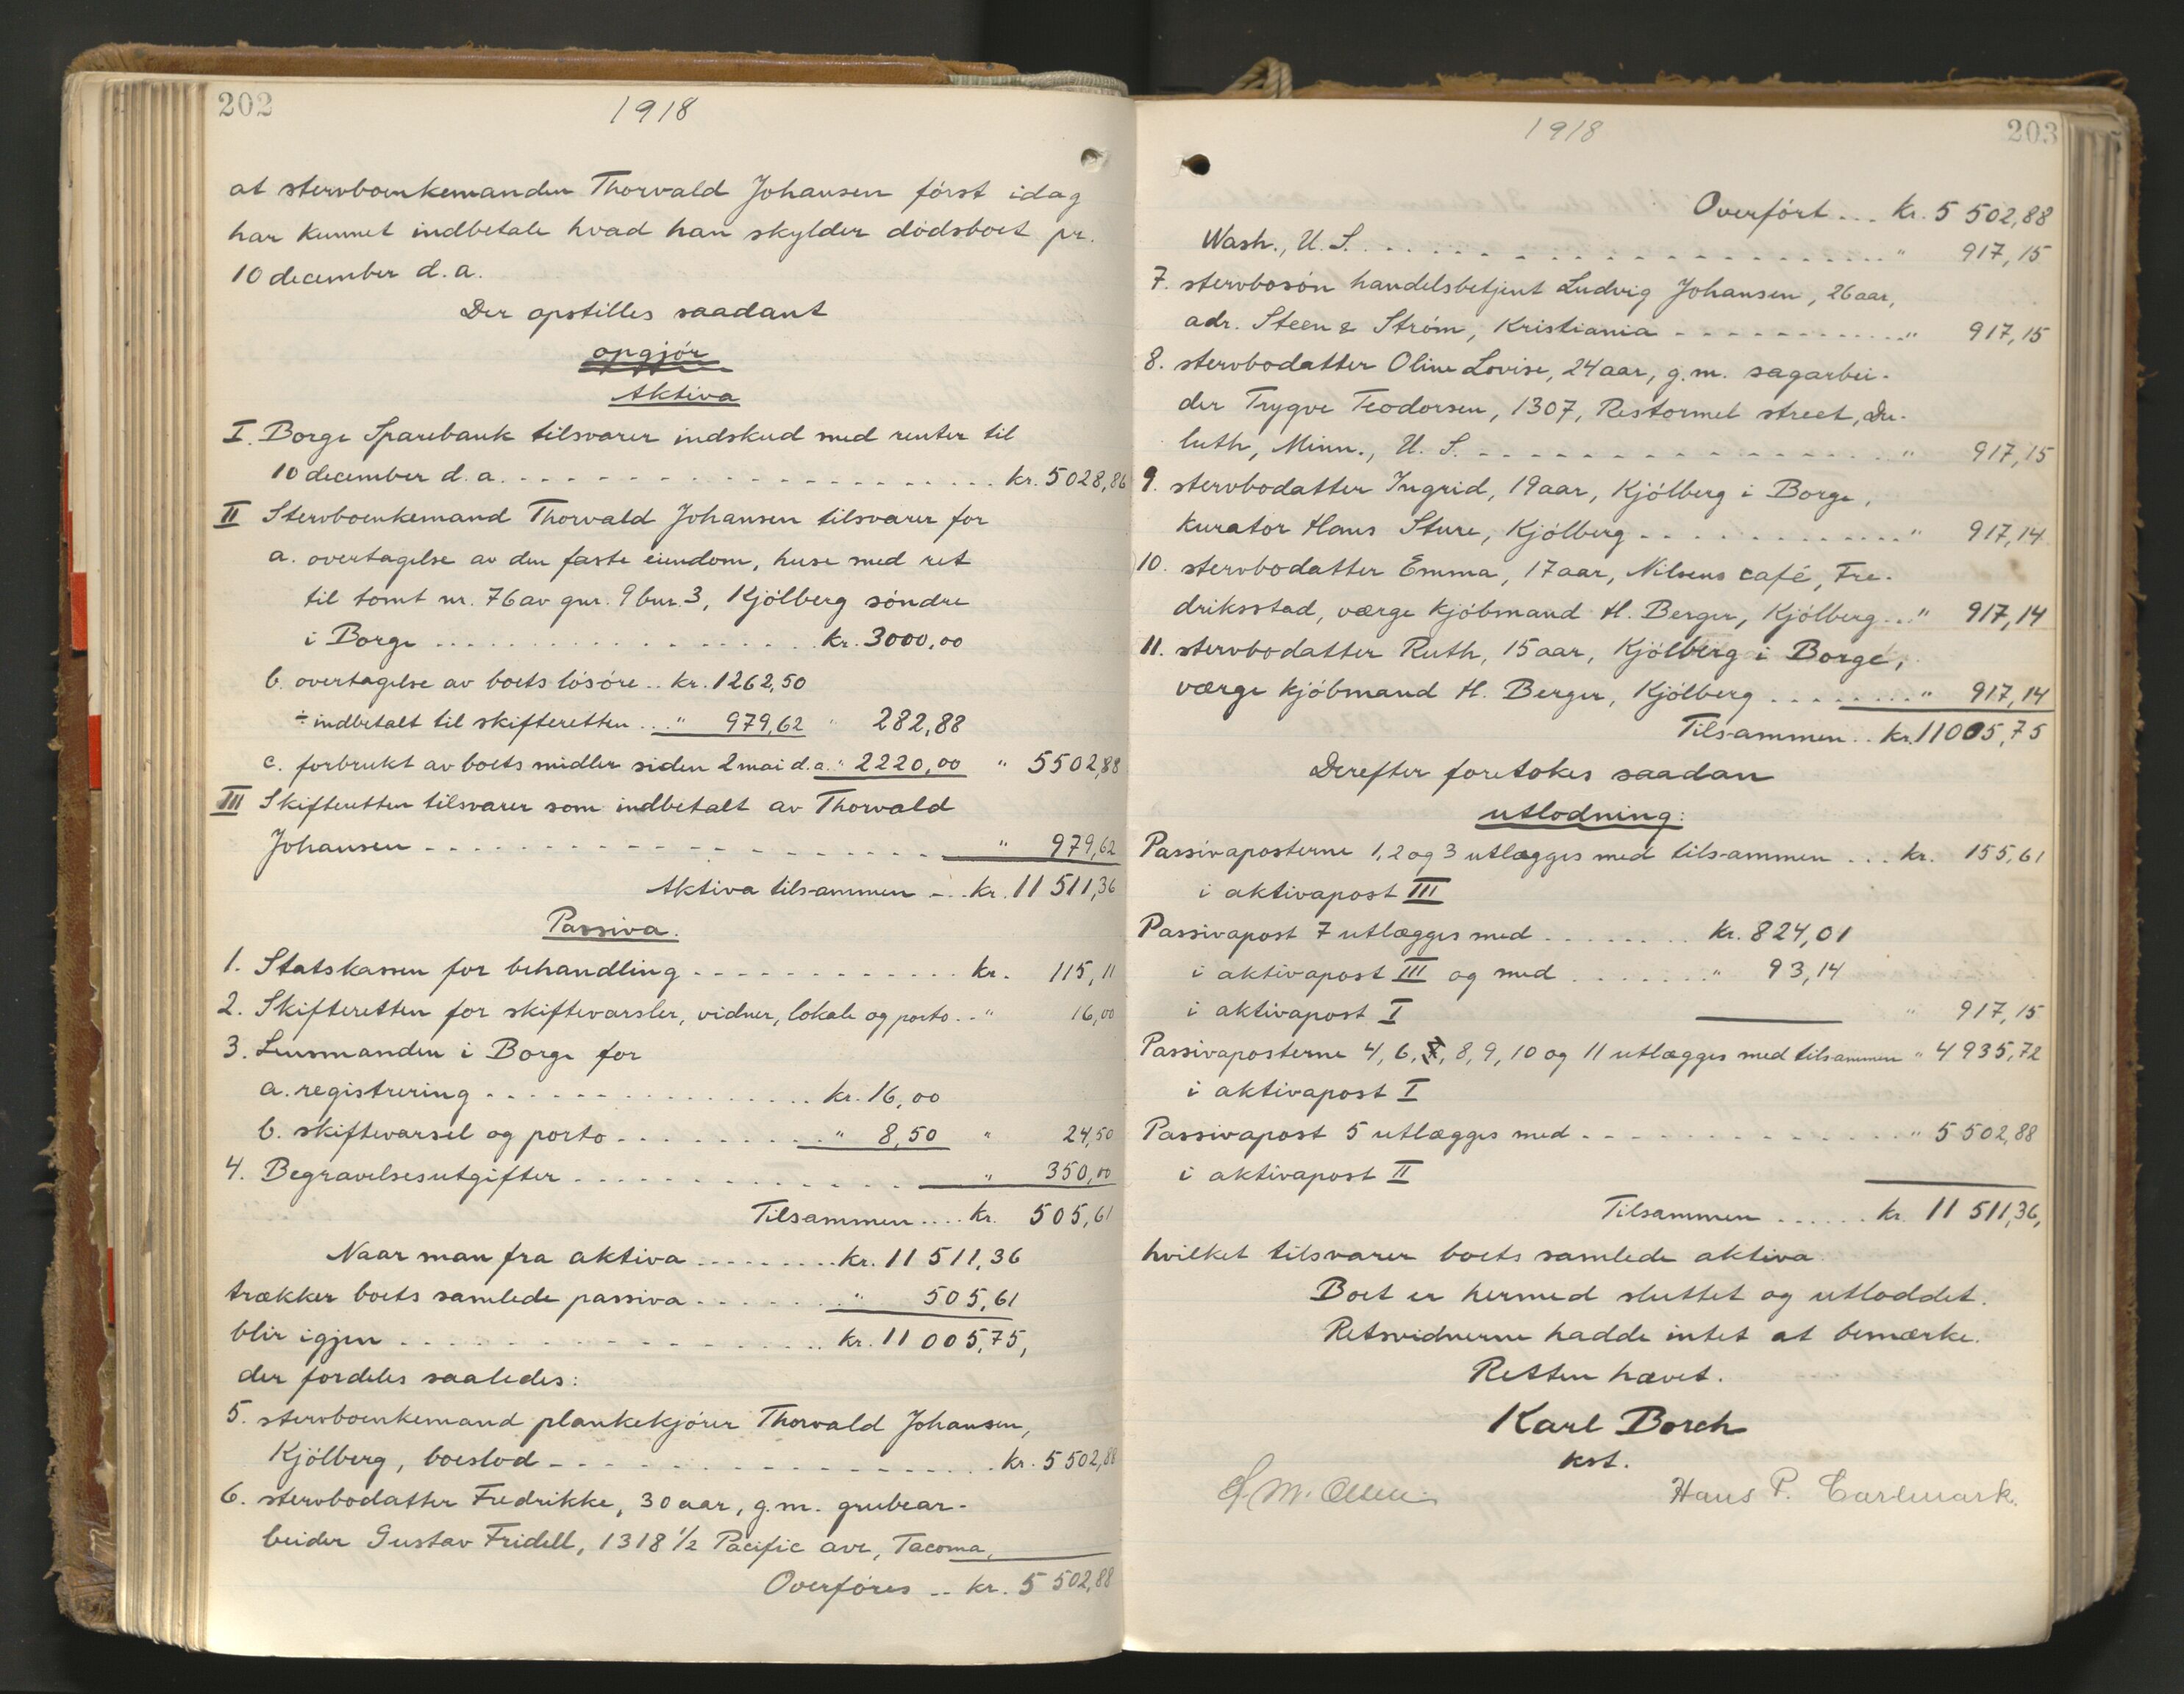 202
1918
at stervboenkemanden Thorvald Johansen först idag
har kunnet indbetale hvad han skylder dödsboet pr.
10 december d.a.
Der opstilles saadant
opgjör
Aktiva
I. Borge Sparebank tilsvarer indskud med renter til
10 december d.a. . . . . . . . . . . . . . . . . . . . . kr. 5028,86
II Stervboenkemand Thorvald Johansen tilsvarer for
a. overtagelse av den faste eiendom, huse med ret
til tomt nr. 76 av gnr. 9 bnr. 3, Kjölberg söndre
i Borge . . . . . . . . . . . . . . . . kr. 3000,00
b. overtagelse av boets lösöre .. kr. 1262,50
÷ indbetalt til skifteretten . . . " 979,62 " 282,88
c. forbrukt av boets midler siden 2 mai d.a. " 2220,00 " 5502,88
III Skifteretten tilsvarer som indbetalt av Thorvald
Johansen - - - - - - - - - - - - - - - - - - " 979,62
Aktiva tilsammen - . . kr. 11 511,36
Passiva.
1. Statskassen for behandling - - - - - - - - - - - - kr. 115,11
2. Skifteretten for skiftevarsler, vidner, lokale og porto . - " 16,00
3. Lensmanden i Borge for
a. registrering - - - - - - - - - - - - - - . . kr. 16,00
b. skiftevarsel og porto - - - - - - - - - " 8,50 " 24,50
4. Begravelsesutgifter - - - - - - - - - - - - - " 350,00
Tilsammen .... kr. 505,61
Naar man fra aktiva - - - - - - - - - kr. 11 511,36
trækker boets samlede passiva - - - - - - - " 505,61
blir igjen - - - - - - - - - - - - - - - - - kr. 11 005,75,
der fordeles saaledes:
5. stervboenkemand plankekjörer Thorvald Johansen,
Kjölberg, boeslod - - - - - - - - - - - - - - - - kr. 5 502,88
6. stervbodatter Fredrikke, 30 aar, g.m. grubear-
beider Gustav Fridell, 1318 1/2 Pacific ave, Tacoma,
Overföres .. kr. 5 502,88
1918
203
Overfört ... kr. 5 502,88
Wash., U.S. . . . . . . . . . . . . . . . . . . . . . " 917,15
7. stervbosön handelsbetjent Ludvig Johansen, 26 aar,
adr. Steen & Ström, Kristiania - - - - - - - - - - " 917,15
8. stervbodatter Oline Lovise, 24 aar, g.m. sagarbei-
der Trygve Teodorsen, 1307, Restormel street, Du-
luth, Minn., U.S. - - - - - - - - - - - - - - - - " 917,15
9. stervbodatter Ingrid, 19 aar, Kjölberg i Borge,
kurator Hans Sture, Kjölberg . . . . . . . . . . . . " 917,14
10. stervbodatter Emma, 17 aar, Nilsens café, Fre-
driksstad, værge kjöbmand H. Berger, Kjölberg . . " 917,14
11. stervbodatter Ruth, 15 aar, Kjölberg i Borge,
værge kjöbmand H. Berger, Kjölberg . . . . . . . . " 917,14
Tilsammen .. kr. 11005,75
Derefter foretokes saadan
utlodning:
Passivaposterne 1, 2 og 3 utlægges med tilsammen ... kr. 155,61
i aktivapost III
Passivapost 7 utlægges med . . . . . . . . kr. 824,01
i aktivapost III og med . . . . . . . " 93,14
i aktivapost I " 917,15
Passivaposterne 4, 6, 7, 8, 9, 10 og 11 utlægges med tilsammen " 4 935,72
i aktivapost I
Passivapost 5 utlægges med - - - - - - - - - - - - - " 5 502,88
i aktivapost II
Tilsammen . . . . . . kr. 11 511,36,
hvilket tilsvarer boets samlede aktiva.
Boet er hermed sluttet og utloddet.
Retsvidnerne hadde intet at bemærke.
Retten hævet.
Karl Borch
kst.
Hans P. Carlmark.